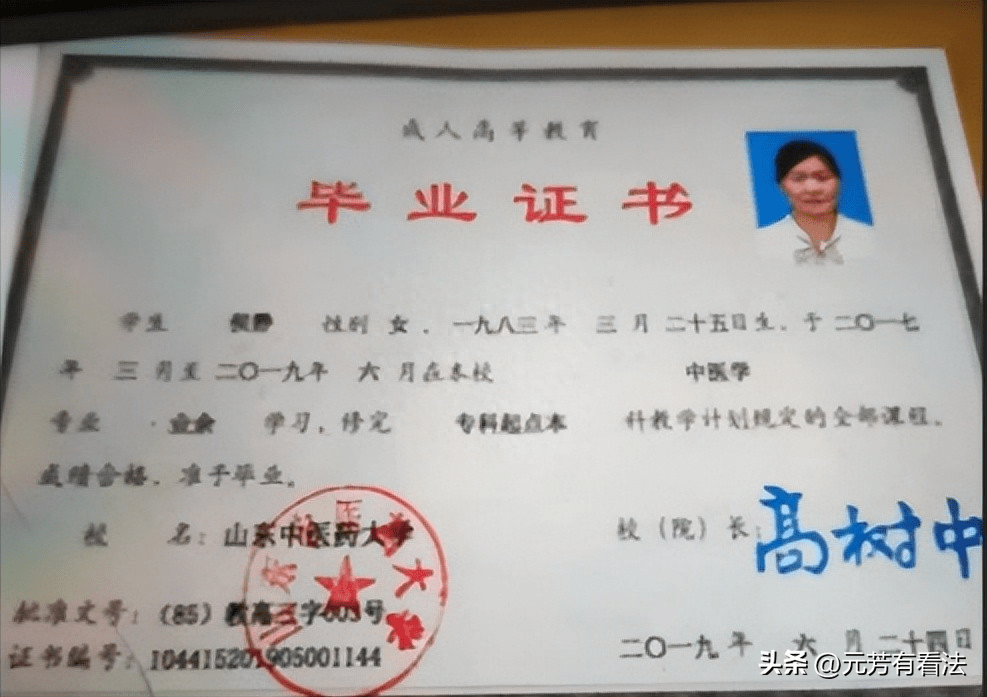 成人高等教育
毕业证书
学生 侯静 性别 女，一九八三年 三 月 二十五日生，于 二〇一七
年 三 月至 二〇一九年 六 月在本校 中医学
专业 业余 学习，修完 专科起点本 科教学计划规定的全部课程，
成绩合格，准予毕业。
校 名：山东中医药大学
校（院）长：高树中
批准文号：（85）教高三字003号
证书编号：104415201905001144
二〇一九年 六 月 二十四日
山东中医药大学
头条 @元芳有看法